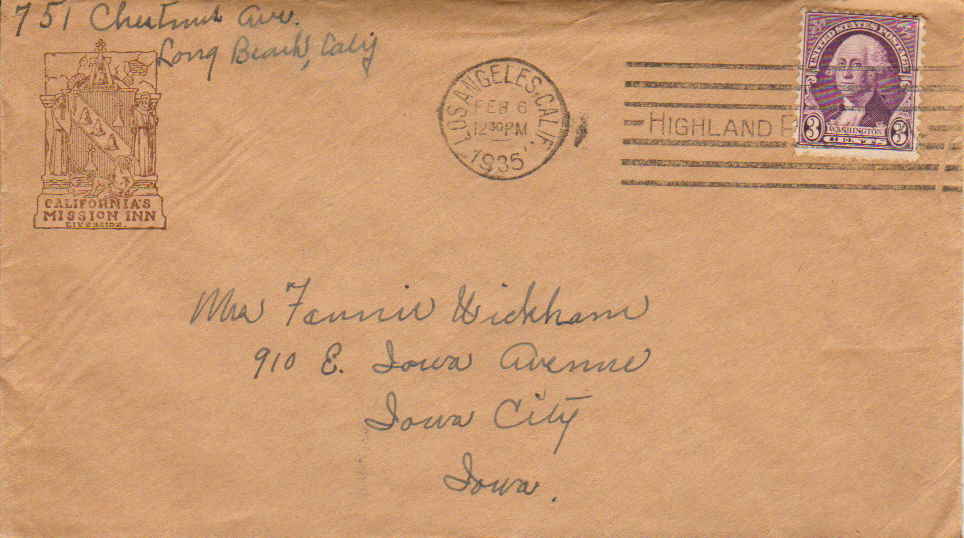 751 Chestnut Ave.
Long Beach, Calif
CALIFORNIA'S
MISSION INN
RIVERSIDE.
LOS ANGELES, CALIF.
FEB 6
12 30 PM
1935
HIGHLAND
UNITED STATES POSTAGE
3 WASHINGTON 3
CENTS
Mrs Fannie Wickham
910 E. Iowa Avenue
Iowa City
Iowa.